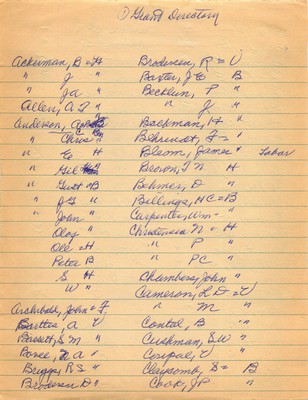 ① Grant Directory
Ackerman, B = H
" J "
" Ja "
Allen, A F "
Anderson,
" Chris "
" E H
" Gil
" Gust = B
" J G "
" John "
" Olog "
" Ole = H
" Peter B
" S H
" W "
Archibald, John = F.
Battee, A V
Bassett, S M "
Boree, N A "
Briggs, R S "
Brodersen D "
Brodersen, R = V
Baxter, J E B
Becklun, P "
" J "
Bachman, H "
Behrendt, F = "
Bloom, James " Labar
Brown, F N H
Bohmer, D "
Billings, H C = B
Carpenter, Wm - "
Christensen N = H
" P "
" PC "
Chambers, John "
Cameron, L D = V
" M "
Contal, B "
Cushman, S W "
Coripal, V "
Claycomb, S = B
Cook, J P "